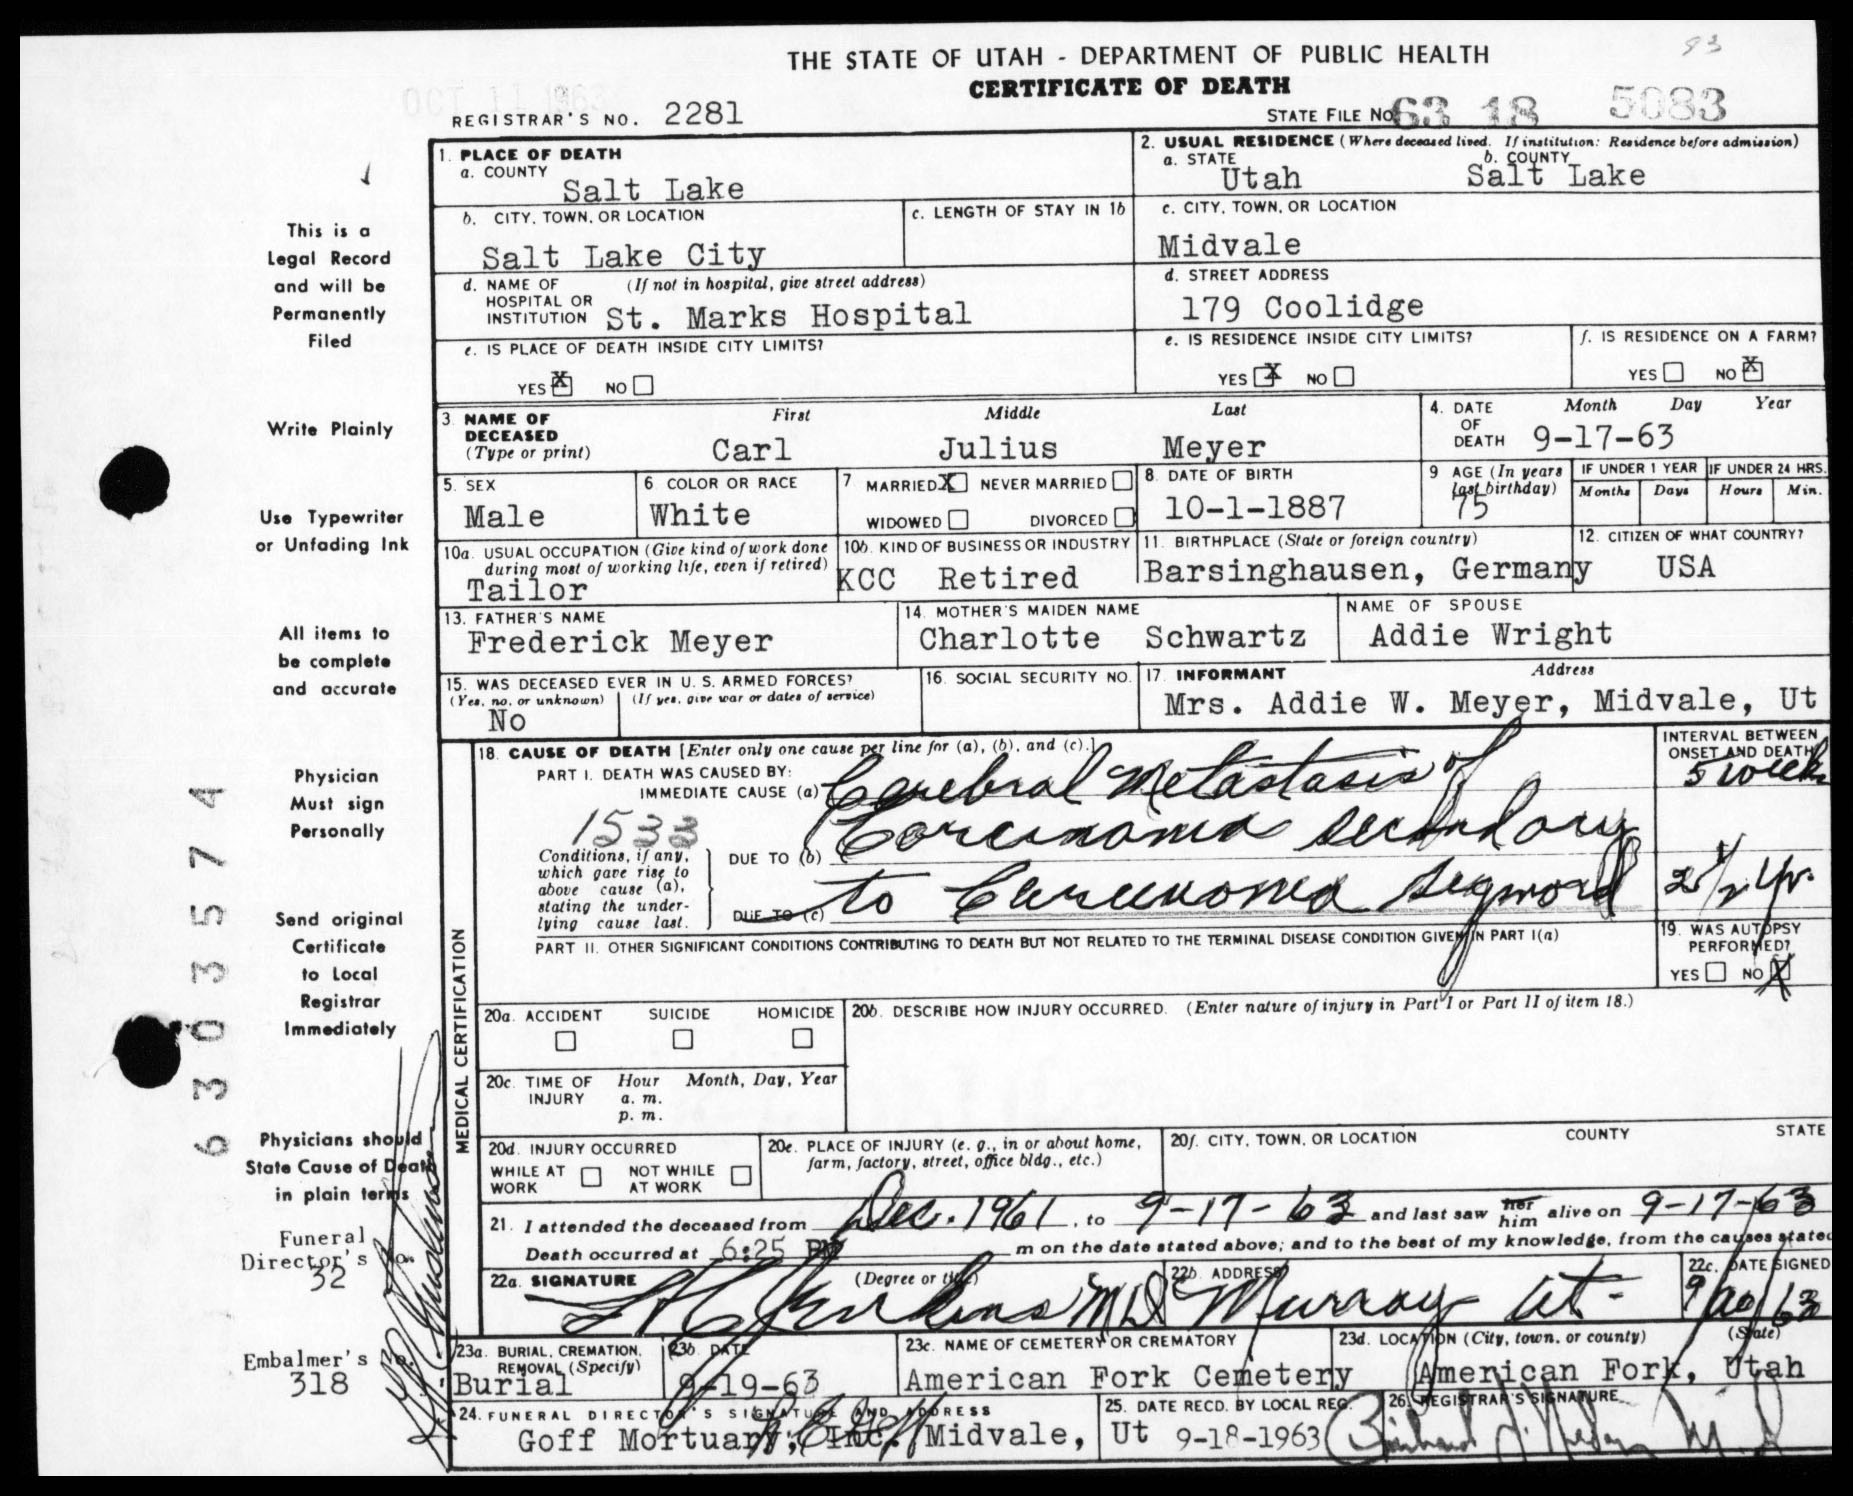 93
THE STATE OF UTAH - DEPARTMENT OF PUBLIC HEALTH
CERTIFICATE OF DEATH
OCT 11 1963
REGISTRAR'S NO. 2281
STATE FILE NO. 63 18 5083
1. PLACE OF DEATH
a. COUNTY
Salt Lake
2. USUAL RESIDENCE (Where deceased lived. If institution: Residence before admission)
a. STATE b. COUNTY
Utah Salt Lake
b. CITY, TOWN, OR LOCATION
Salt Lake City
c. LENGTH OF STAY IN 1b
c. CITY, TOWN, OR LOCATION
Midvale
d. NAME OF HOSPITAL OR INSTITUTION (If not in hospital, give street address)
St. Marks Hospital
d. STREET ADDRESS
179 Coolidge
e. IS PLACE OF DEATH INSIDE CITY LIMITS?
YES X NO
e. IS RESIDENCE INSIDE CITY LIMITS?
YES X NO
f. IS RESIDENCE ON A FARM?
YES NO X
3. NAME OF DECEASED (Type or print)
First Middle Last
Carl Julius Meyer
4. DATE OF DEATH Month Day Year
9-17-63
5. SEX
Male
6. COLOR OR RACE
White
7. MARRIED X NEVER MARRIED
WIDOWED DIVORCED
8. DATE OF BIRTH
10-1-1887
9. AGE (In years last birthday)
75
IF UNDER 1 YEAR IF UNDER 24 HRS.
Months Days Hours Min.
10a. USUAL OCCUPATION (Give kind of work done during most of working life, even if retired)
Tailor
10b. KIND OF BUSINESS OR INDUSTRY
KCC Retired
11. BIRTHPLACE (State or foreign country)
Barsinghausen, Germany
12. CITIZEN OF WHAT COUNTRY?
USA
13. FATHER'S NAME
Frederick Meyer
14. MOTHER'S MAIDEN NAME
Charlotte Schwartz
NAME OF SPOUSE
Addie Wright
15. WAS DECEASED EVER IN U. S. ARMED FORCES?
(Yes, no, or unknown) (If yes, give war or dates of service)
No
16. SOCIAL SECURITY NO.
17. INFORMANT Address
Mrs. Addie W. Meyer, Midvale, Ut
MEDICAL CERTIFICATION
18. CAUSE OF DEATH [Enter only one cause per line for (a), (b), and (c).]
INTERVAL BETWEEN ONSET AND DEATH
PART I. DEATH WAS CAUSED BY:
IMMEDIATE CAUSE (a) Cerebral Metastasis of
5 weeks
1533
Conditions, if any, which gave rise to above cause (a), stating the underlying cause last.
DUE TO (b) Carcinoma secondary
DUE TO (c) to Carcinoma sigmoid
2 1/2 yr.
PART II. OTHER SIGNIFICANT CONDITIONS CONTRIBUTING TO DEATH BUT NOT RELATED TO THE TERMINAL DISEASE CONDITION GIVEN IN PART I(a)
19. WAS AUTOPSY PERFORMED?
YES NO X
20a. ACCIDENT SUICIDE HOMICIDE
20b. DESCRIBE HOW INJURY OCCURRED. (Enter nature of injury in Part I or Part II of item 18.)
20c. TIME OF INJURY Hour Month, Day, Year
a. m.
p. m.
20d. INJURY OCCURRED
WHILE AT WORK NOT WHILE AT WORK
20e. PLACE OF INJURY (e. g., in or about home, farm, factory, street, office bldg., etc.)
20f. CITY, TOWN, OR LOCATION COUNTY STATE
21. I attended the deceased from Dec. 1961, to 9-17-63 and last saw her him alive on 9-17-63
Death occurred at 6:25 PM m on the date stated above; and to the best of my knowledge, from the causes stated
22a. SIGNATURE (Degree or title)
Jenkins MD
22b. ADDRESS
Murray Ut-
22c. DATE SIGNED
23a. BURIAL, CREMATION, REMOVAL (Specify)
Burial
23b. DATE
9-19-63
23c. NAME OF CEMETERY OR CREMATORY
American Fork Cemetery
23d. LOCATION (City, town, or county) (State)
American Fork, Utah
24. FUNERAL DIRECTOR'S SIGNATURE AND ADDRESS
Goff Mortuary, Inc. Midvale, Ut
25. DATE RECD. BY LOCAL REG.
9-18-1963
26. REGISTRAR'S SIGNATURE
This is a
Legal Record
and will be
Permanently
Filed
Write Plainly
Use Typewriter
or Unfading Ink
All items to
be complete
and accurate
Physician
Must sign
Personally
Send original
Certificate
to Local
Registrar
Immediately
Physicians should
State Cause of Death
in plain terms
Funeral
Director's No.
32
Embalmer's No.
318
6303574